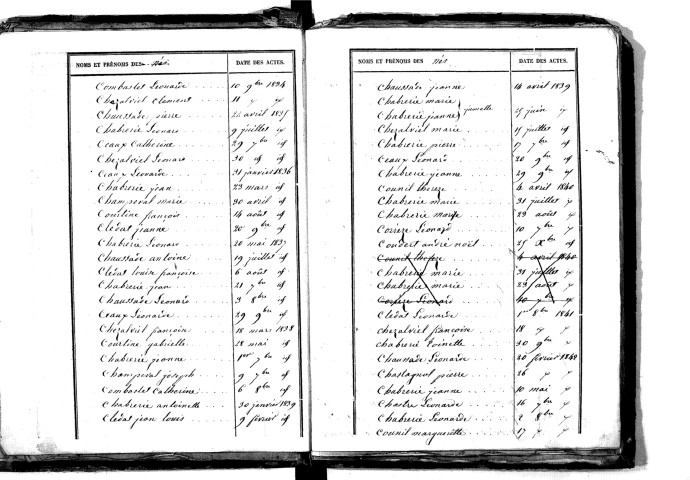 NOMS ET PRÉNOMS DES Nés DATE DES ACTES.
Combastel Léonarde 10 9bre 1834
Chezalviel clément 11 " "
Chaussade pierre 22 avril 1835
Chabrerie Léonard 9 juillet id
Ceaux Catherine 29 7bre id
Chezalviel Léonard 30 id id
Ceaux Léonarde 31 janvier 1836
Chabrerie jean 23 mars id
Champseval marie 30 avril id
Courtine françois 14 août id
Clédat jeanne 20 9bre id
Chabrerie Léonard 26 mai 1837
Chaussade antoine 19 juillet id
Clédat louise françoise 6 août id
Chabrerie jean 21 7bre id
Chaussade Léonard 3 8bre id
Ceaux Léonarde 29 9bre id
Chezalviel françoise 18 mars 1838
Courtine gabrielle 28 mai id
Chabrerie jeanne 1er 7bre id
Champseval joseph 9 7bre id
Combastel Catherine 6 8bre id
Chabrerie antoinette 30 janvier 1839
Clédat jean louis 9 février id
NOMS ET PRÉNOMS DES Nés DATE DES ACTES.
Chaussade jeanne 14 avril 1839
Chabrerie marie
Chabrerie jeanne jumelle 25 juin id
Chezalviel marie 15 juillet id
Chabrerie pierre 17 7bre id
Ceaux Léonard 20 9bre id
Chabrerie jeanne 29 9bre id
Counil thérèse 4 avril 1840
Chabrerie marie 31 juillet id
Chabrerie marie 23 août id
Correze Léonard 10 7bre id
Coudert andré noël 25 Xbre id
Counil thérèse 4 avril 1840
Chabrerie marie 31 juillet
Chabrerie marie 23 août
Correze Léonard 10 7bre
Clédat Léonarde 1er 8bre 1841
chezalviel françoise 18 " "
chabrerie Toinette 30 9bre "
Chaussade Léonarde 20 février 1842
Chastagnol pierre 26 " "
Chabrerie jeanne 10 mai "
Chastre Léonarde 16 7bre "
Chabrerie Léonarde 2 8bre "
Counil marguerite 17 " "